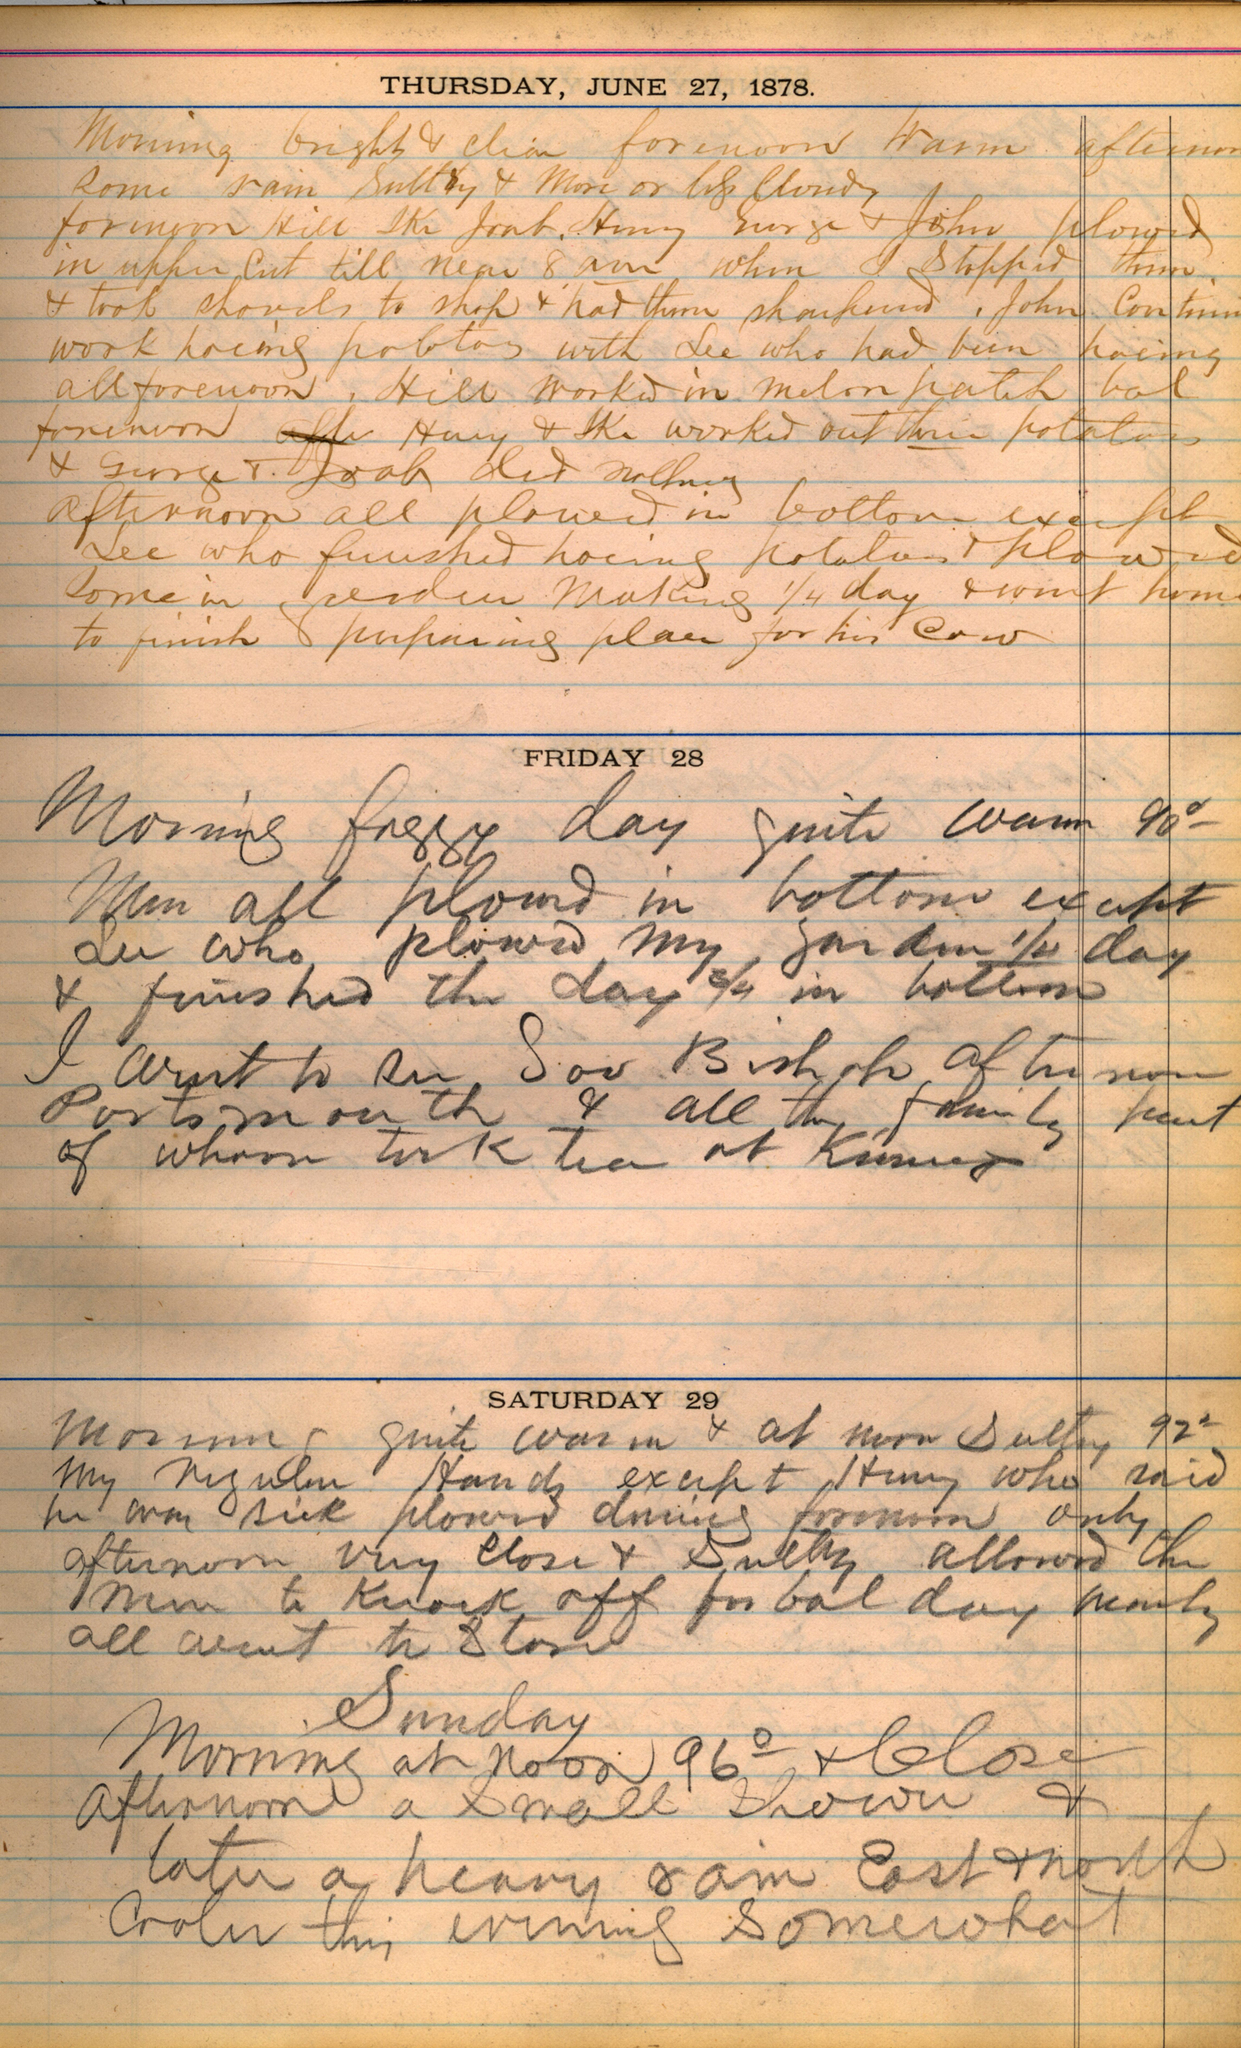 THURSDAY, JUNE 27, 1878.
Morning bright & clear forenoon Warm afternoon
some rain Sultry & More or less Cloudy
forenoon Hill Ike Joab. Henry George & John plowed
in upper Cut till near 8 am when I Stopped them
& took shovels to shop & had them sharpened. John Continued
work hoeing potatoes with Lee who had been hoeing
all forenoon. Hill worked in melon patch bal
forenoon Henry & Ike worked out their potatoes
& George T. Joab did nothing
Afternoon all plowed in bottom except
Lee who finished hoeing potatoes & plowed
some in garden Making 1/4 day & went home
to finish preparing place for his Cow
FRIDAY 28
Morning foggy day quite warm 90°
Men all plowed in bottom except
Lee who plowed my garden 1/4 day
& finished the day 3/4 in bottom
I went to see Gov Bishop afternoon
Portsmouth & all the family part
of whom took tea at Kinneys
SATURDAY 29
Morning quite warm & at noon Sultry 92°
My regular Hands except Henry who said
he was sick plowed during forenoon only
afternoon very Close & Sultry allowed the
Men to Knock off for bal day nearly
all went to Store
Sunday
Morning at noon 96° & Close
Afternoon a Small Shower &
later a heavy rain East & north
Cooler this evening Somewhat